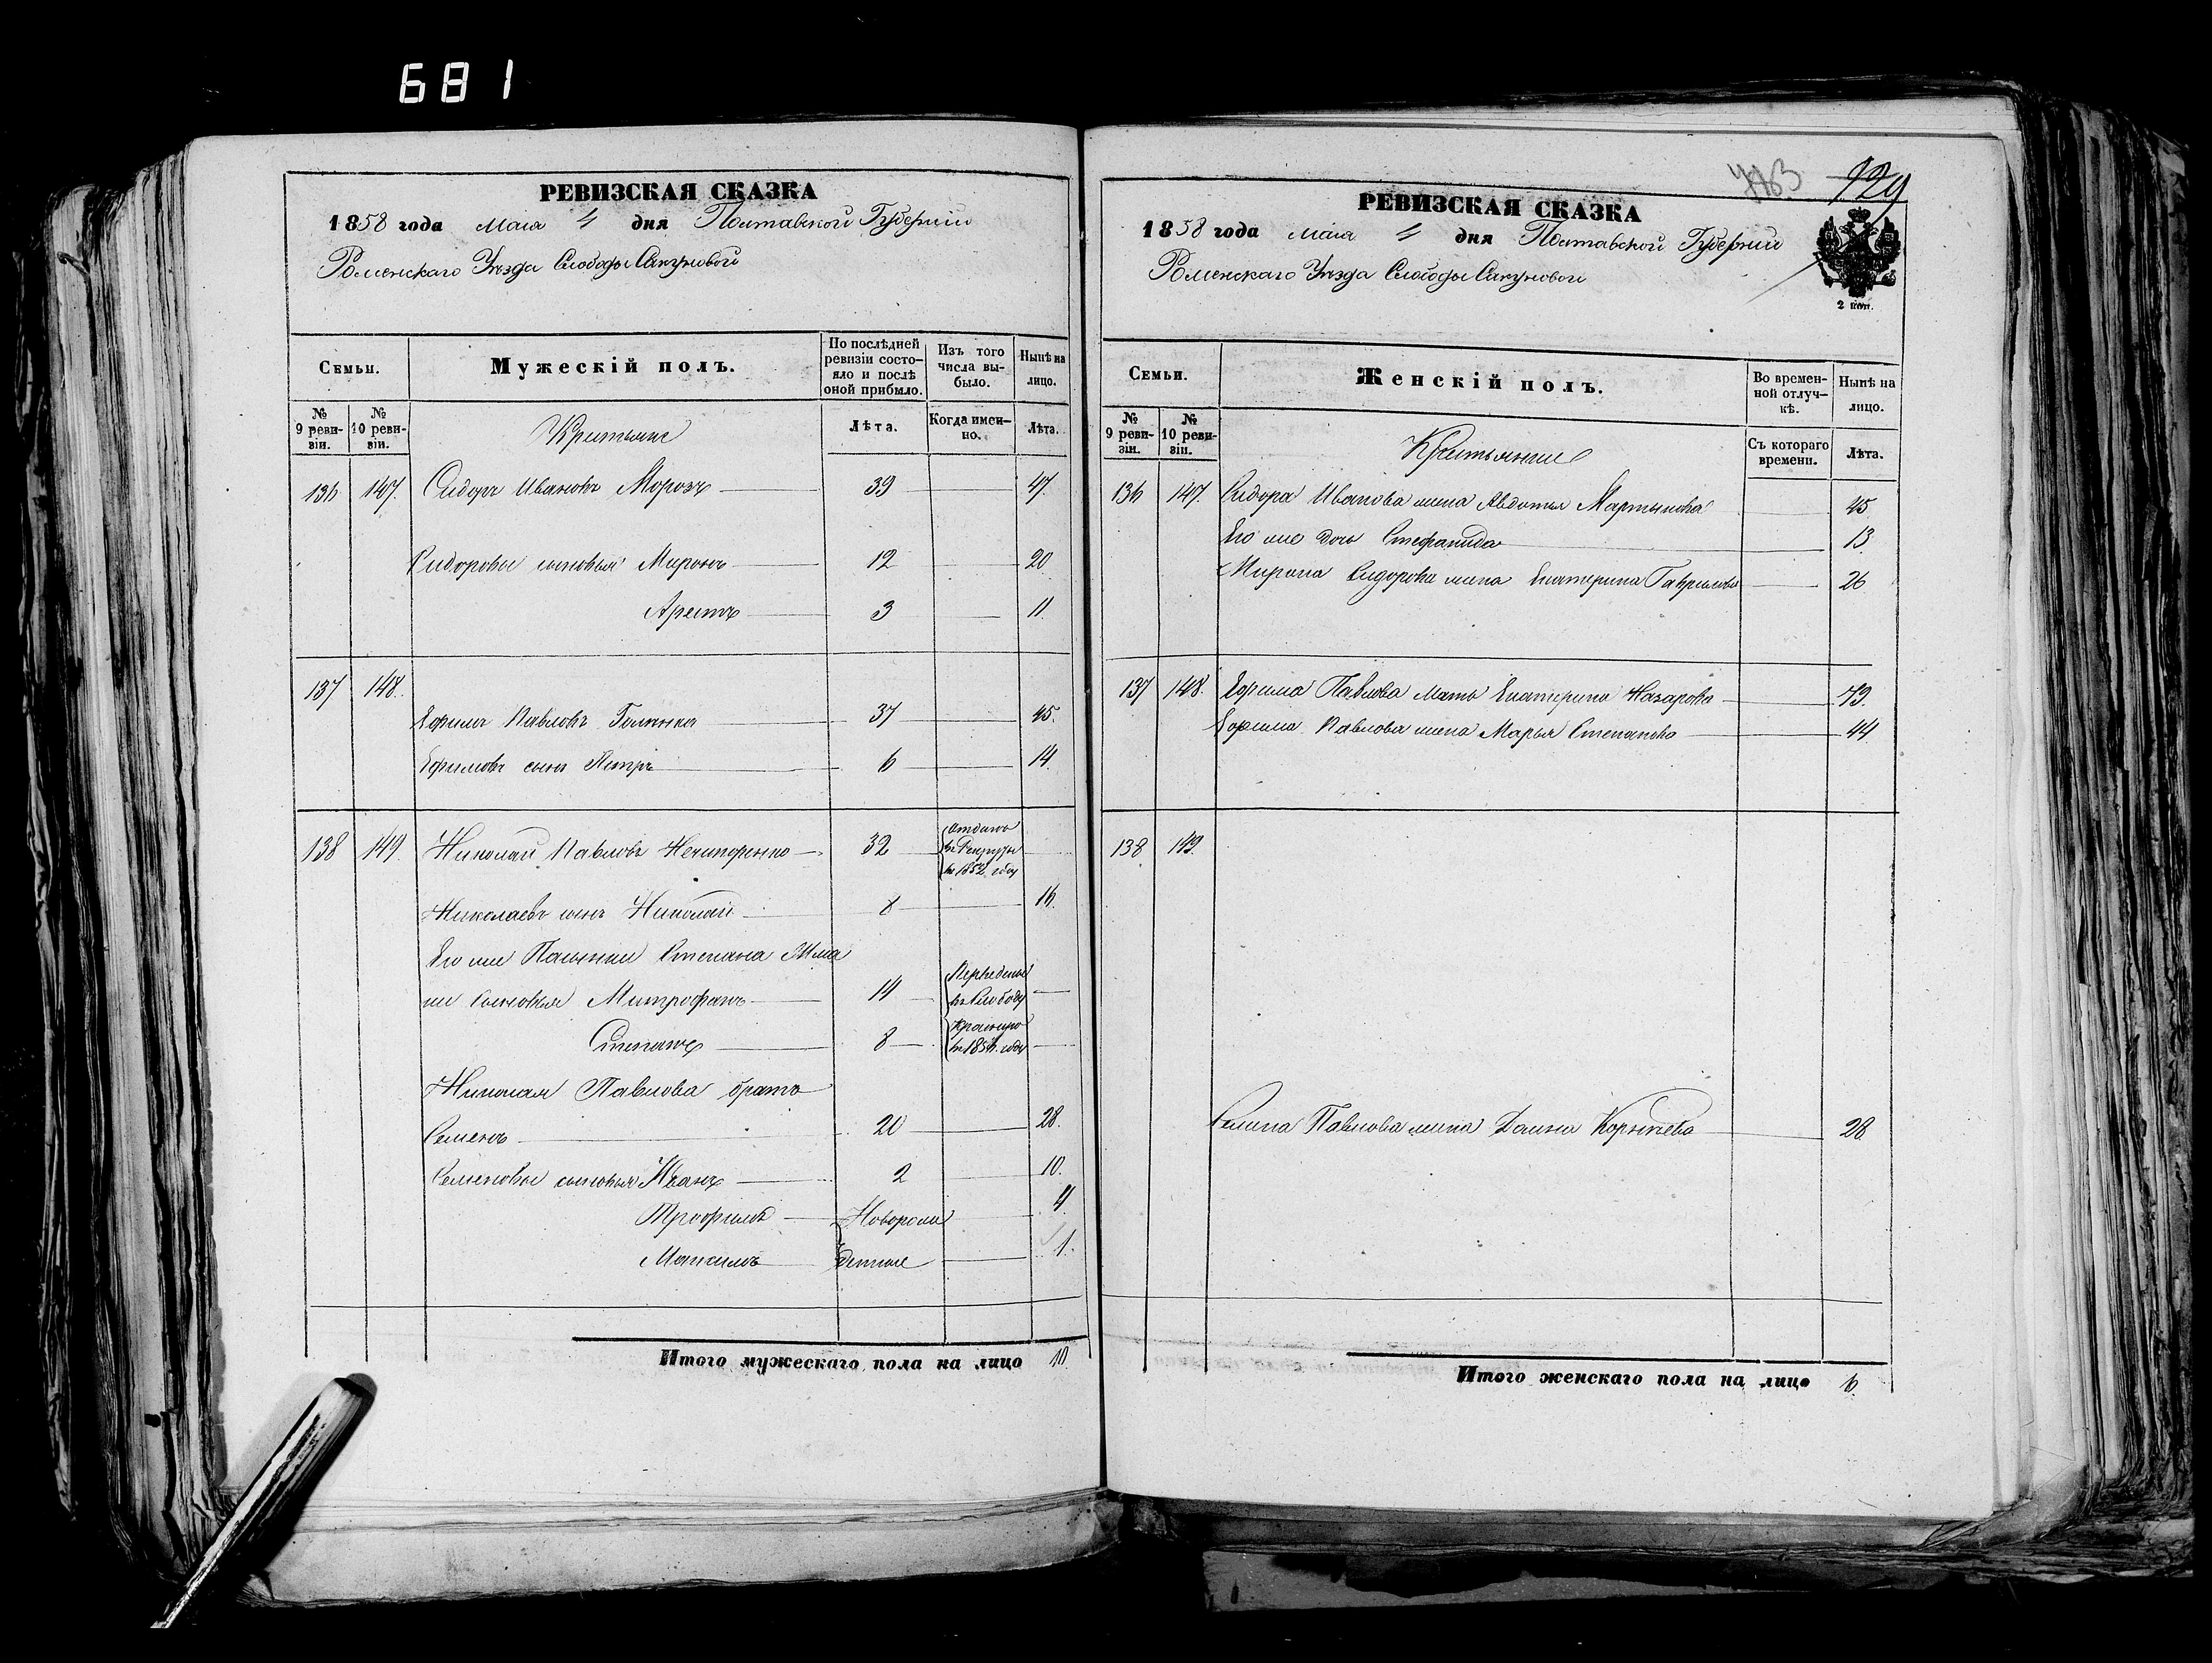 681
РЕВИЗСКАЯ СКАЗКА
1858 года Маія 4 дня Полтавской Губерніи
Роменскаго Уѣзда Слободы Сакуновой
Семьи.
Мужескій полъ.
По послѣдней ревизіи состояло и послѣ оной прибыло.
Изъ того числа выбыло.
Нынѣ на лицо.
№ 9 ревизіи.
№ 10 ревизіи.
Крестьяне
Лѣта.
Когда именно.
Лѣта.
136 147. Сидоръ Ивановъ Морозъ 39 47.
Сидоровы сыновья Миронъ 12 20
Арестъ 3 11.
137 148.
Ефимъ Павловъ 37 45.
Ефимовъ сынъ Петръ 6 14.
138 149. Николай Павловъ Нечипоренко 32 Отданъ въ Рекруты въ 1852 году
Николаевъ сынъ Николай 8 16.
Его же Пасынки Степана
ни сыновья Митрофанъ 14 Переведены въ Слободу
Степанъ 8 въ 1856. году
Николая Павлова братъ
Семенъ 20 28.
Семеновы сыновья Иванъ 2 10.
Трофимъ Новорож 4.
Максимъ денные 1.
Итого мужескаго пола на лицо 10.
763 129
РЕВИЗСКАЯ СКАЗКА
1858 года Маія 4 дня Полтавской Губерніи
Роменскаго Уѣзда Слободы Сакуновой
2 коп.
Семьи.
Женскій полъ.
Во временной отлучкѣ.
Нынѣ на лицо.
№ 9 ревизіи.
№ 10 ревизіи.
Крестьянки
Съ котораго времени.
Лѣта.
136 147. Сидора Иванова жена Авдотья Мартынова 45
Его же дочь Стефанида 13.
Мирона Сидорова жена Екатерина Гаврилова 26
137 148. Ефима Павлова мать Екатерина Назарова 73.
Ефима Павлова жена Марья Степанова 44
138 149.
Семена Павлова жена Корнѣева 28
Итого женскаго пола на лицо 6.